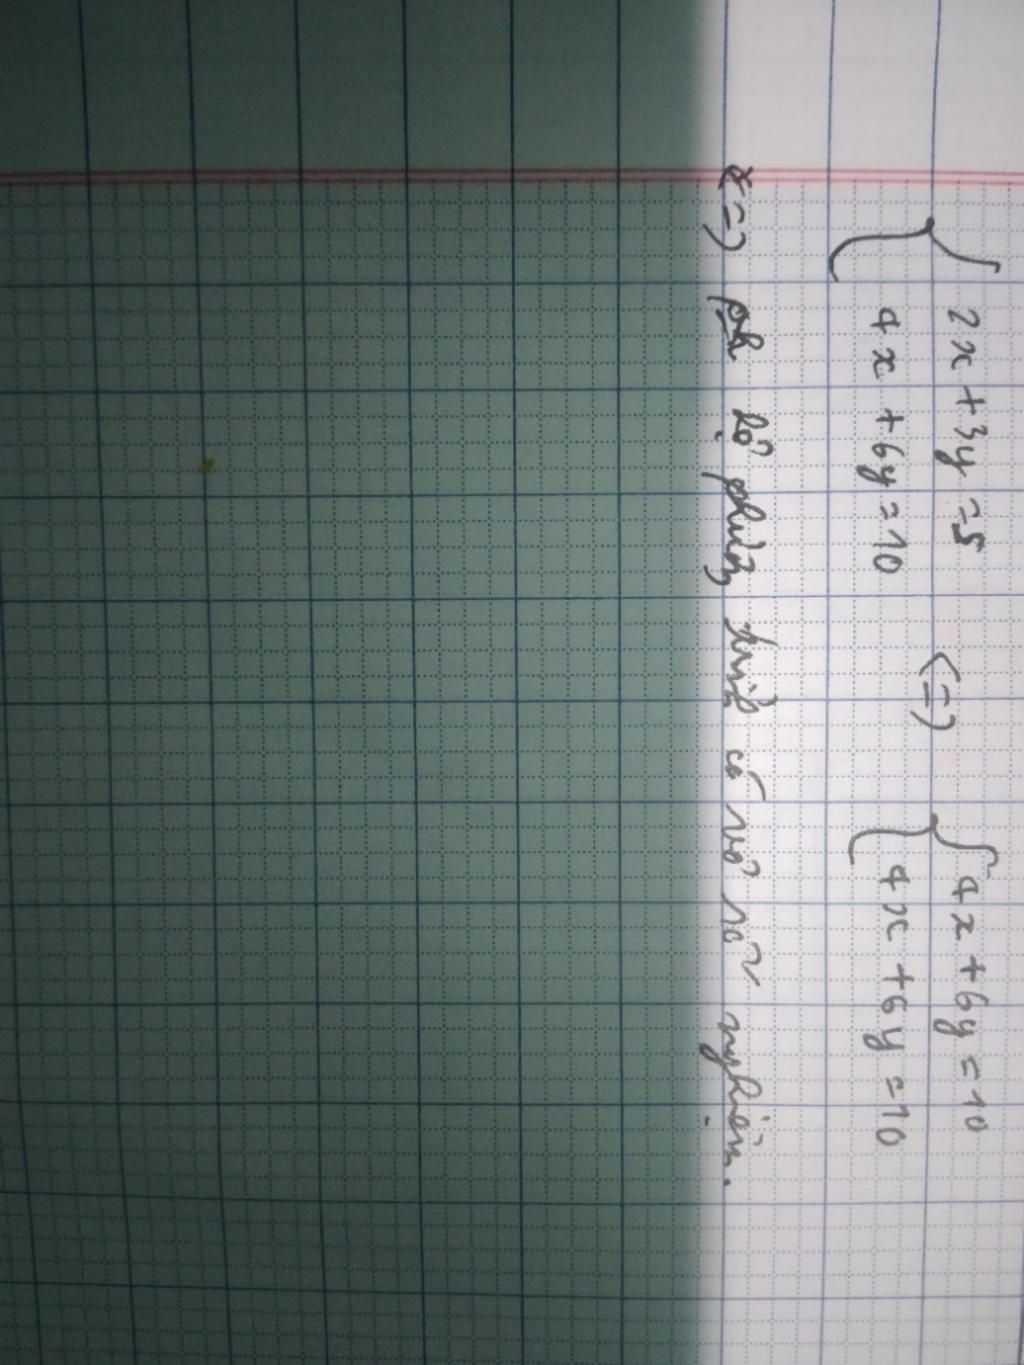 { 2x + 3y = 5 <=> { 4x + 6y = 10
4x + 6y = 10 4x + 6y = 10
=> hệ phương trình có vô số nghiệm.